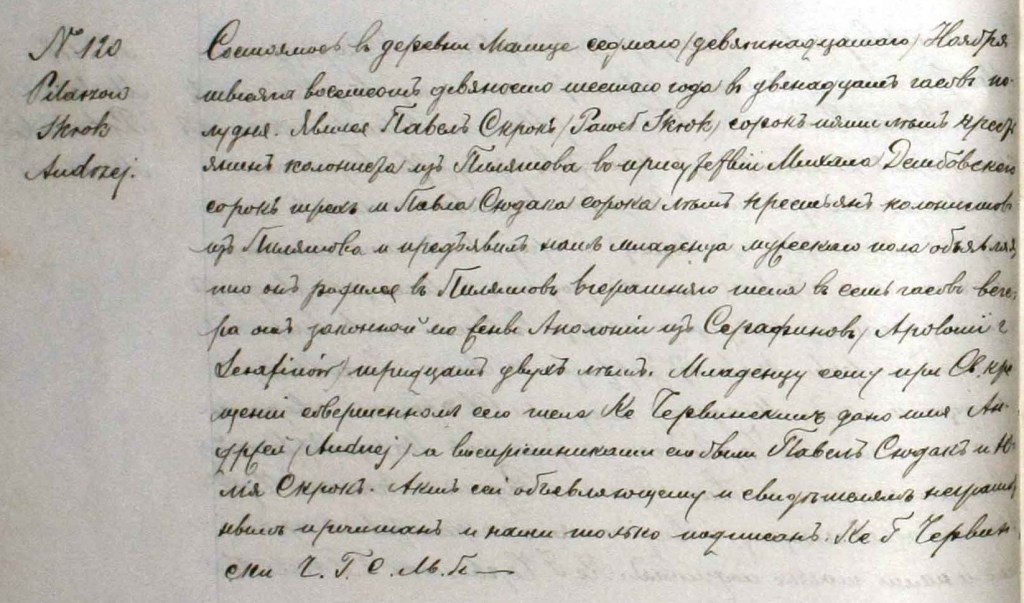 N 120
Pilaszow
Skrok
Andrzej.
Состоялось в деревни Матце седмаго /девятнадцатаго/ Ноября
тысяча восемсотъ девяносто шестаго года в двенадцать часовъ по-
лудня. Явился Павелъ Скрокъ /Paweł Skrok/ сорокъ пяти лѣтъ кресть-
янинъ колониста изъ Пиляшова во присутствіи Михала Дембовскаго
сорокъ трехъ и Павла Сюдака сорока лѣтъ крестьянъ колонистовъ
изъ Пиляшова и предъявилъ намъ младенца мужескаго пола объявляя
что онъ родился въ Пиляшовѣ вчерашняго числа в семь часовъ вече-
ра отъ законной его жены Аполоніи изъ Серафиновъ /Apolonii z
Serafinów/ тридцать двухъ лѣтъ. Младенцу сему при Св. кре-
щеніи совершенномъ сего числа Кс Червинскимъ дано имя Ан-
држей /Andrzej/ а воспріемниками его были Павелъ Сюдакъ и Ю-
лія Скрокъ. Актъ сей объявляющему и свидѣтелямъ неграмот-
нымъ прочитанъ и нами только подписанъ. Кс Г Червин-
ски Ч. Г. С. М. Б.